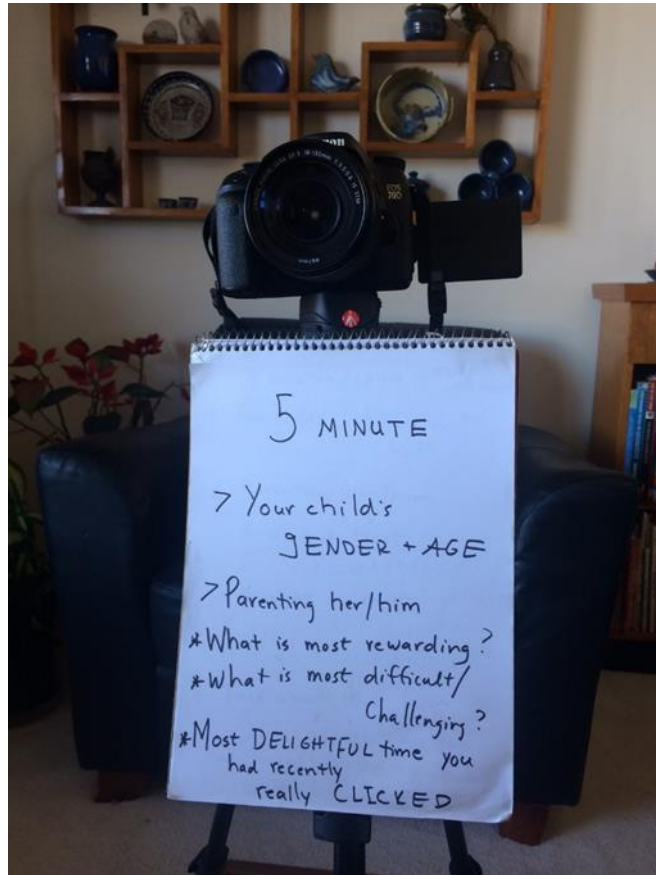 Canon
EOS
70D
5 MINUTE
> Your child's
GENDER + AGE
> Parenting her/him
*What is most rewarding?
*What is most difficult/
Challenging?
*Most DELIGHTFUL time you
had recently
really CLICKED